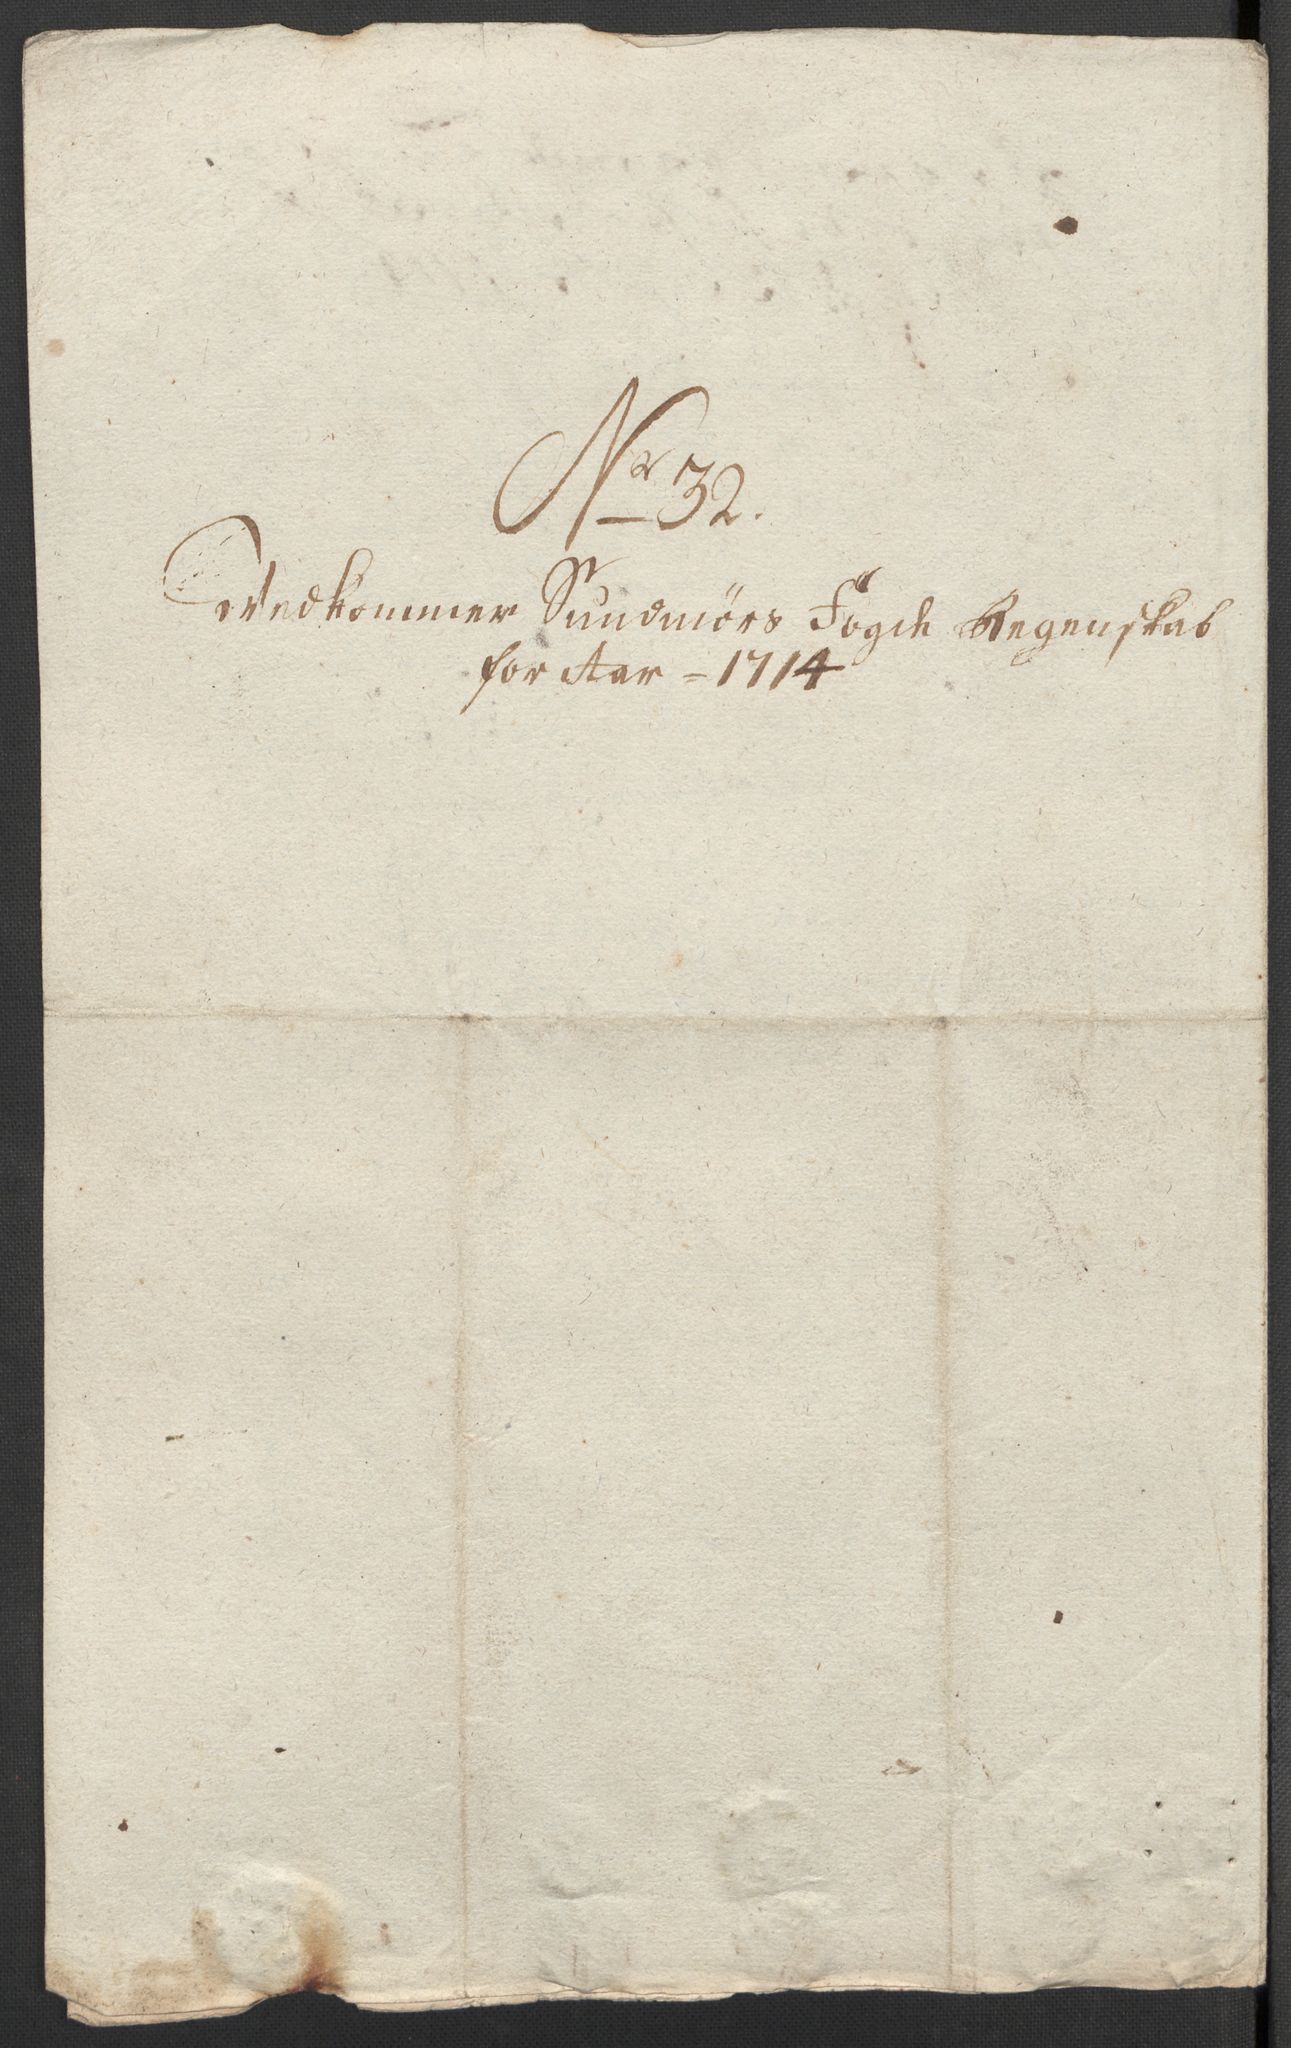 No 32.
Vedkommer Sundmörs Fogde Regenskab
for Aar - 1714